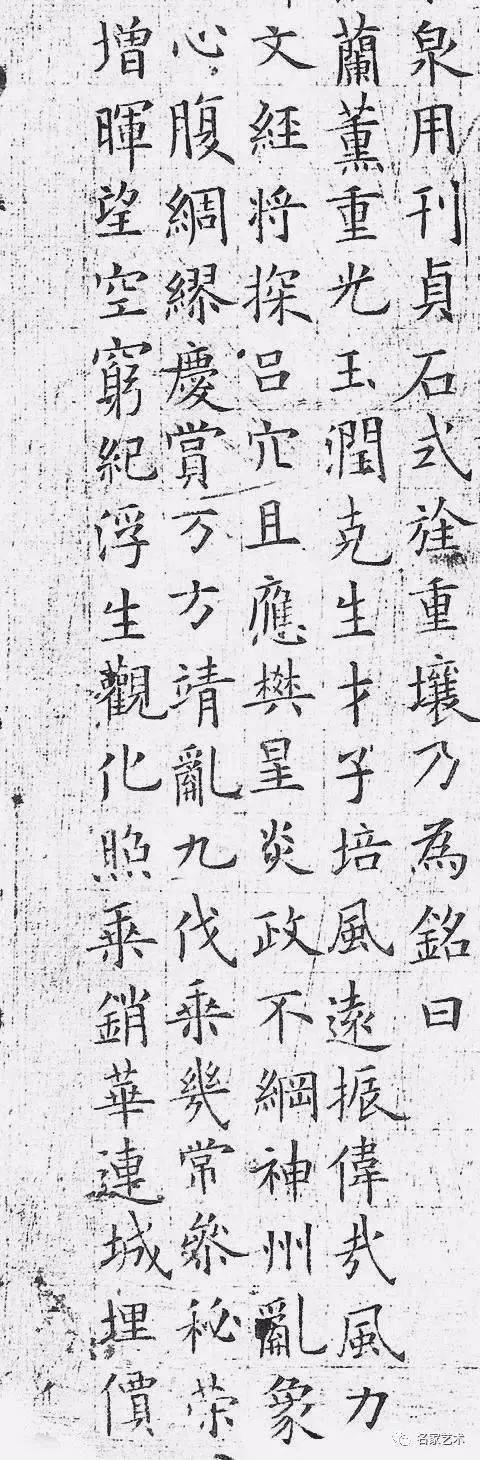 泉用刊貞石式旌重壤乃為銘曰
蘭薰重光玉潤克生才子培風遠振偉哉風力
文經將探呂穴且應樊星炎政不綱神州亂象
心腹綢繆慶賞万方靖亂九伐乘幾常參秘榮
增暉望空窮紀浮生觀化照乘銷華連城埋價
名家艺术